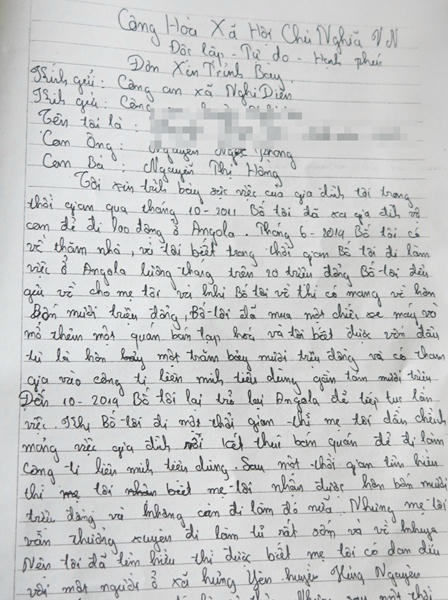 Công Hoà Xã Hội Chủ Nghĩa VN
Độc lập - Tự do - Hạnh phúc
Đơn Xin Trình Bày
Kính gửi: Công an xã Nghi Diên
Kính gửi: Công
Tên tôi là:
Con Ông: Nguyễn Ngọc
Con Bà: Nguyễn Thị Hằng
Tôi xin trình bày sực việc của gia đình tôi trong
thời gian qua tháng 10-2011 Bố tôi đã xa gia đình vợ
con để đi lao động ở Angola. Tháng 6-2014 Bố tôi có
về thăm nhà, và tôi biết trong thời gian Bố tôi đi làm
việc ở Angola lương tháng trên 20 triệu đồng Bố tôi đều
gửi về cho mẹ tôi và khi Bố tôi về thì có mang về hơn
Bốn mươi triệu đồng, Bố tôi đã mua một chiếc xe máy và
mở thêm một quán bán tạp hoá và tôi biết được vốn đầu
tư là hơn một trăm bảy mươi triệu đồng và có tham
gia vào công ti liên minh tiêu dùng gần tám mươi triệu
Đến 10-2014 Bố tôi lại trở lại Angola để tiếp tục làm
việc. Khi Bố tôi đi một thời gian thì mẹ tôi dần chểnh
mảng việc gia đình rồi kết thúc bán quán để đi làm
công ti liên minh tiêu dùng. Sau một thời gian tìm hiểu
thì tôi biết mẹ tôi nhận được hơn bốn mươi
triệu đồng và không còn đi làm đó nữa. Nhưng mẹ tôi
vẫn thường xuyên đi làm từ rất sớm và về khuya
Nên tôi đã tìm hiểu thì được biết mẹ tôi có dan díu
với một người ở xã hưng Yên huyện Hưng Nguyên
sau một thời